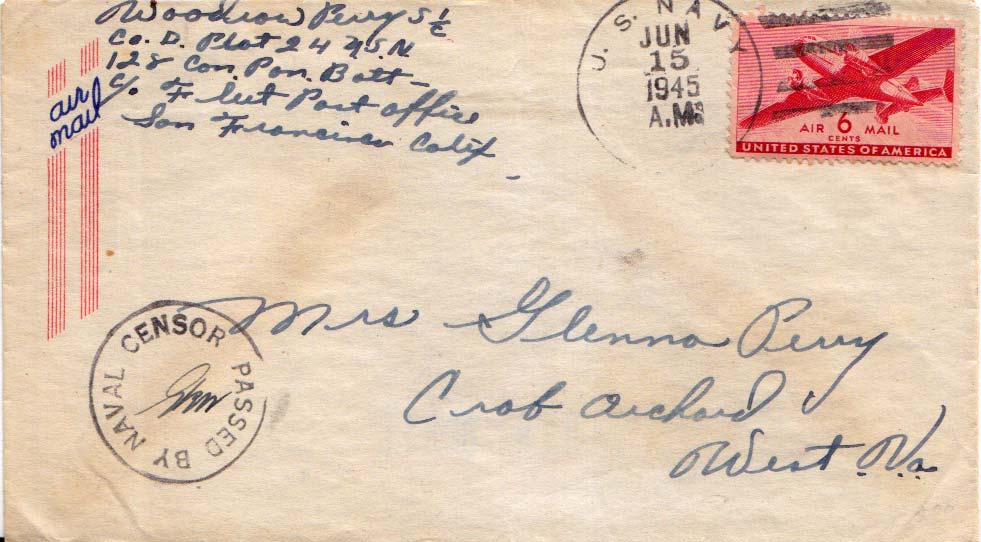 Woodrow Perry S 1/c
Co. D. Plat 24 U.S.N
128 Con. Pon. Batt -
c/o Fleet Post office
San Francisco Calif
air
mail
U.S. NAVY
JUN
15
1945
A.M.
AIR 6 MAIL
CENTS
UNITED STATES OF AMERICA
PASSED BY NAVAL CENSOR
Mrs Glenna Perry
Crab Orchard
West. Va.